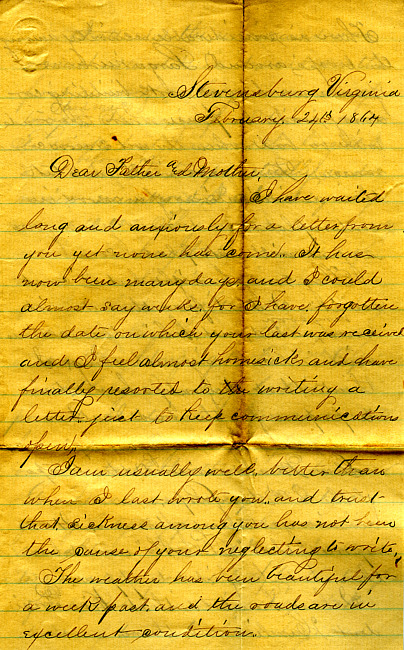 Stevensburg Virginia
February, 24th 1864
Dear Father & Mother,
I have waited
long and anxiously for a letter from
you yet none has come. It has
now been many days, and I could
almost say weeks, for I have forgotten
the date on which your last was received
and I feel almost homesick, and have
finally resorted to the writing a
letter just to keep communication
open,
I am usually well, better than
when I last wrote you, and trust
that sickness among you has not been
the cause of your neglecting to write,
The weather has been beautiful for
a week past and the roads are in
excellent condition.